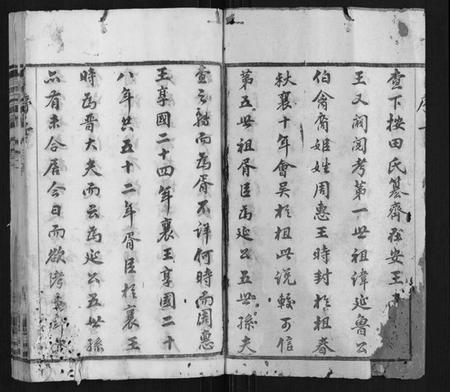 查下按田氏篡齊孫安王
王又閱閱考第一世祖諱延魯公
伯禽裔姬姓周惠王時封於祖春
秋襄十年會吳於祖此説較可信
第五世祖胥臣爲延公五世孫夫
查之雖而爲胥不詳何時而周惠
王享國二十四年襄王享國二十
八年共五十二年胥臣於襄王
時爲晉大夫而云爲延公五世孫
品有未合居今日而欲考